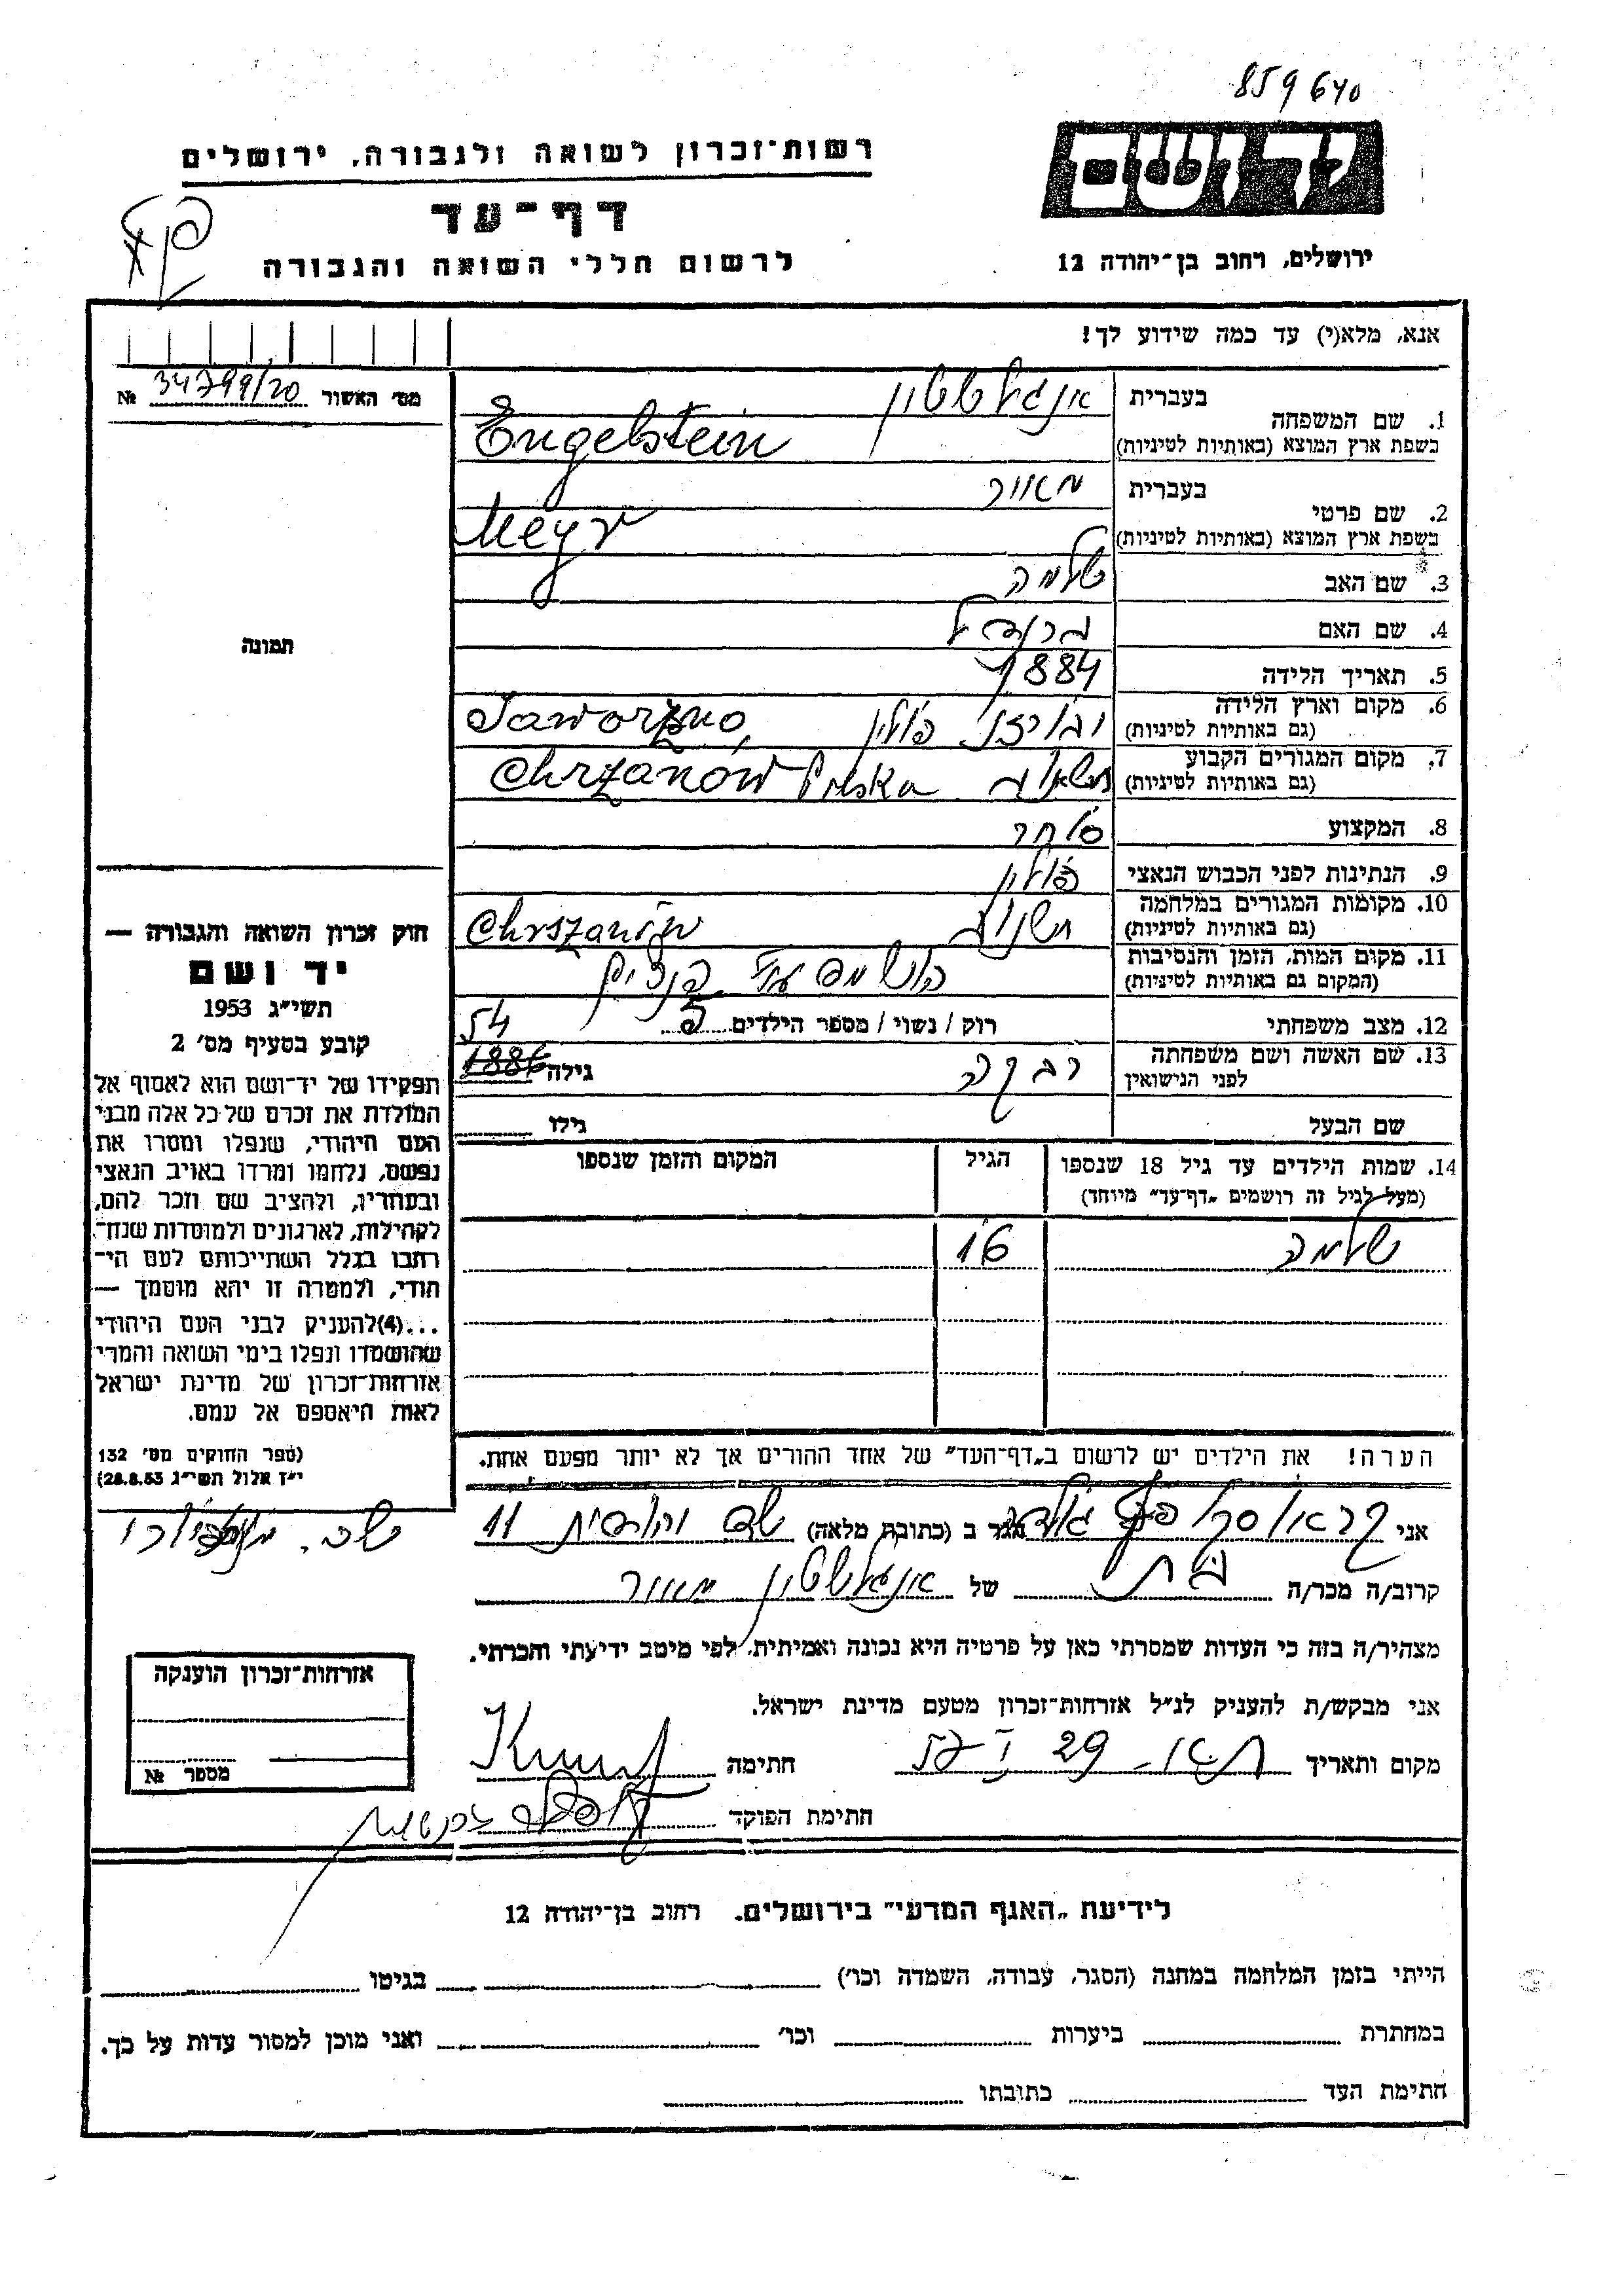 859640
יד ושם
רשות־זכרון לשואה ולגבורה, ירושלים
דף־עד
לרשום חללי השואה והגבורה
ירושלים, רחוב בן־יהודה 12
אנא, מלא(י) עד כמה שידוע לך!
מס׳ האשור 34799/20 №
1. שם המשפחה
בעברית
בשפת ארץ המוצא (באותיות לטיניות)
Engelstein
2. שם פרטי
בעברית מאיר
בשפת ארץ המוצא (באותיות לטיניות)
Meyr
3. שם האב שלמה
4. שם האם
5. תאריך הלידה 1884
6. מקום וארץ הלידה
(גם באותיות לטיניות)
פולין Jaworzno,
7. מקום המגורים הקבוע
(גם באותיות לטיניות)
Chrzanów Polska
8. המקצוע סוחר
9. הנתינות לפני הכבוש הנאצי פולין
10. מקומות המגורים במלחמה
(גם באותיות לטיניות)
Chrszanów
11. מקום המות, הזמן והנסיבות
(המקום גם באותיות לטיניות)
12. מצב משפחתי רוק / נשוי / מספר הילדים
13. שם האשה ושם משפחתה
לפני הנישואין
רבקה גילה 54
שם הבעל גילו
14. שמות הילדים עד גיל 18 שנספו
(מעל לגיל זה רושמים „דף־עד״ מיוחד)
הגיל
המקום והזמן שנספו
שלמה 16
הערה! את הילדים יש לרשום ב„דף־העד״ של אחד ההורים אך לא יותר מפעם אחת.
תמונה
חוק זכרון השואה והגבורה —
יד ושם
תשי״ג 1953
קובע בסעיף מס׳ 2
תפקידו של יד־ושם הוא לאסוף אל
המולדת את זכרם של כל אלה מבני
העם היהודי, שנפלו ומסרו את
נפשם, נלחמו ומרדו באויב הנאצי
ובעוזריו, ולהציב שם וזכר להם,
לקהילות, לארגונים ולמוסדות שנח־
רבו בגלל השתייכותם לעם הי־
הודי, ולמטרה זו יהא מוסמך —
...(4)להעניק לבני העם היהודי
שהושמדו ונפלו בימי השואה והמרי
אזרחות־זכרון של מדינת ישראל
לאות היאספם אל עמם.
(ספר החוקים מס׳ 132
י״ז אלול תשי״ג 28.8.53)
אני הגר ב (כתובת מלאה) 11
קרוב/ה מכר/ה בת של אנגלשטין מאיר
מצהיר/ה בזה כי העדות שמסרתי כאן על פרטיה היא נכונה ואמיתית, לפי מיטב ידיעתי והכרתי.
אני מבקש/ת להעניק לנ״ל אזרחות־זכרון מטעם מדינת ישראל.
מקום ותאריך 29 חתימה
חתימת הפוקד
אזרחות־זכרון הוענקה
מספר №
לידיעת „האגף המדעי״ בירושלים. רחוב בן־יהודה 12
הייתי בזמן המלחמה במחנה (הסגר, עבודה, השמדה וכו׳) בגיטו
במחתרת ביערות וכו׳ ואני מוכן למסור עדות על כך.
חתימת העד כתובתו